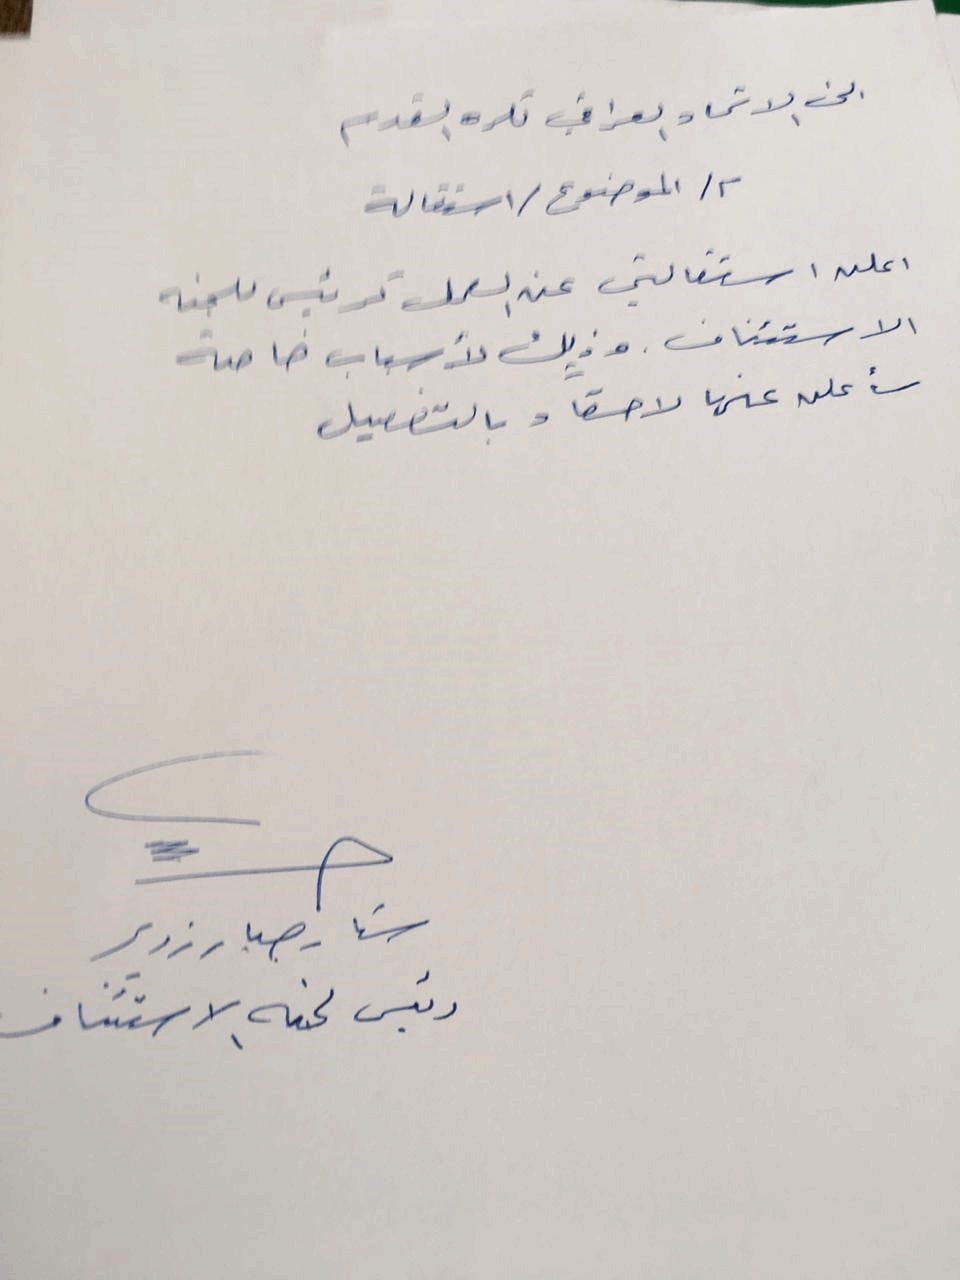 الى الاتحاد العراقي لكره القدم
م/ الموضوع/استقالة
اعلن استقالتي عن العمل كرئيس للجنه
الاستئناف. وذلك لأسباب خاصة
سأعلن عنها لاحقا وبالتفصيل
ستار جبار زوير
رئيس لجنه الاستئناف